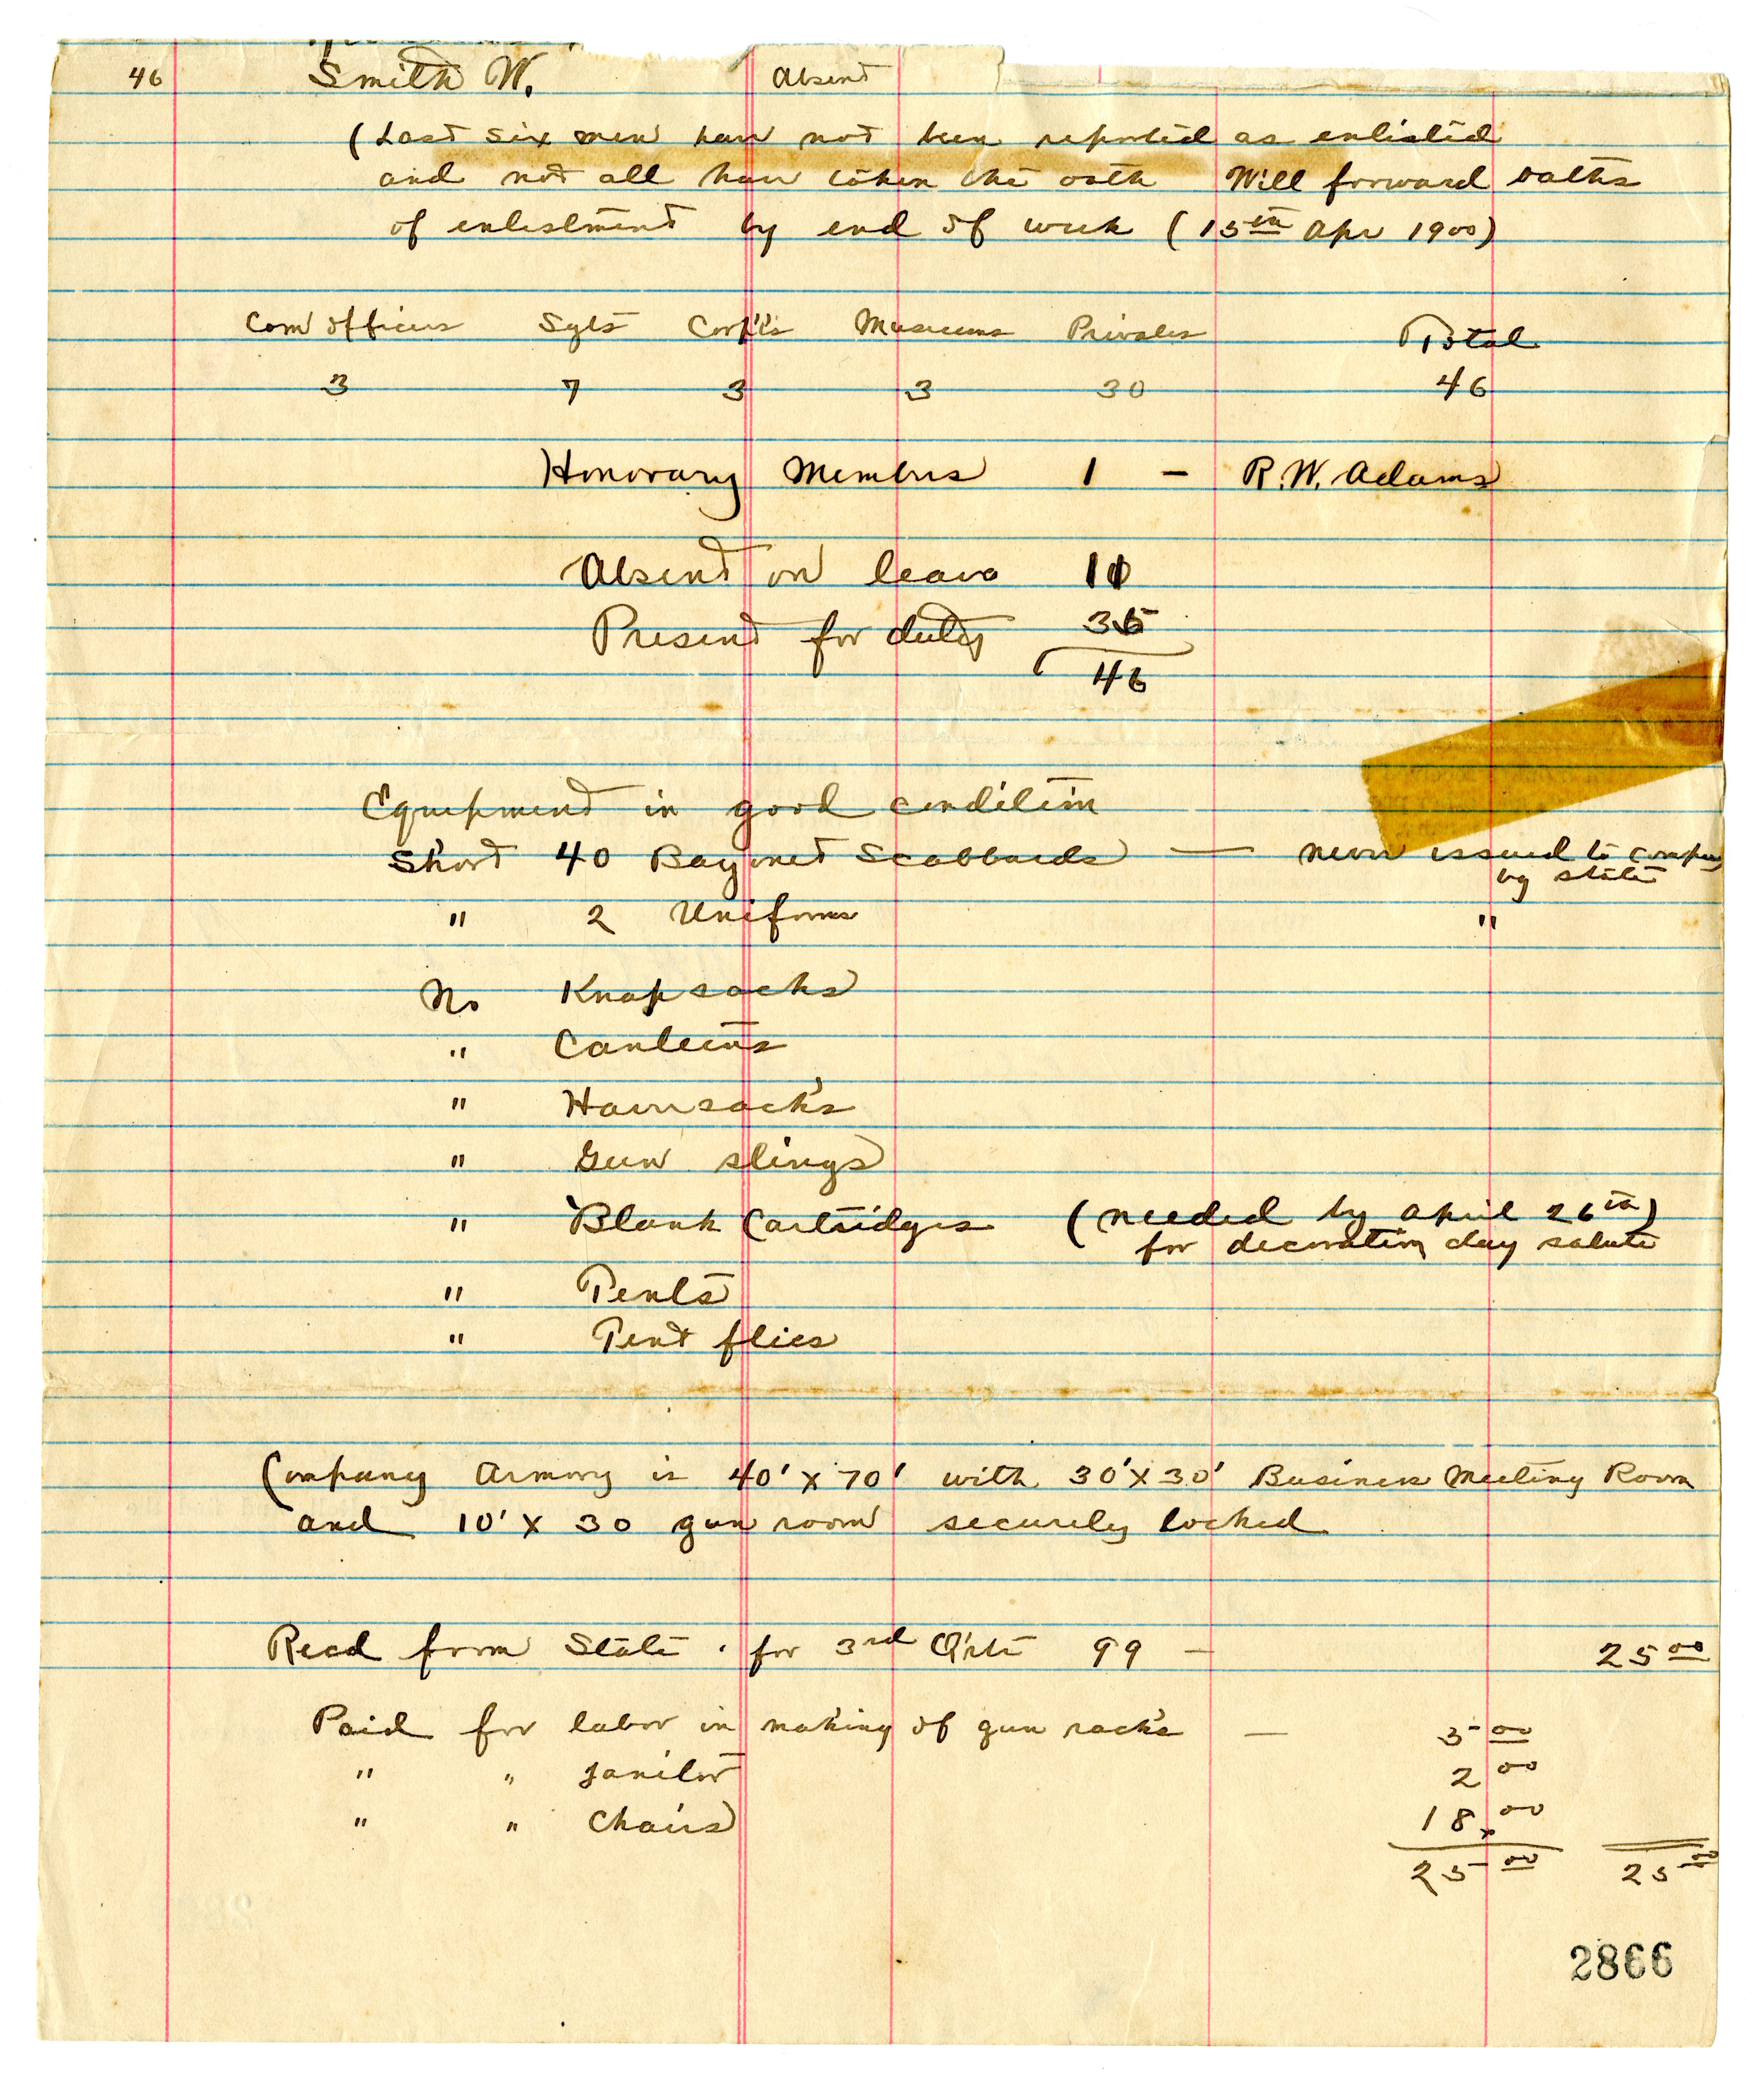 46 Smith W. Absent
(Last six men have not been reported as enlisted
and not all have taken the oath Will forward oaths
of enlistment by end of week (15th Apr 1900)
Com officers Sgts Corp'ls Musicians Privates Total
3 7 3 3 30 46
Honorary Members 1 - R.W. Adams
Absent on leave 11
Present for duty 35
46
Equipment in good condition
Short 40 Bayonet Scabbards — never issued to company
by state
" 2 Uniforms "
No Knapsacks
" Canteens
" Haversacks
" Gun slings
" Blank Cartridges (needed by April 26th)
for decoration day salute
" Tents
" Tent flies
Company Armory is 40' x 70' with 30' x 30' Business Meeting Room
and 10' x 30 gun room securely locked
Recd from State . for 3rd Qrtr 99 - 25 00
Paid for labor in making of gun racks — 5 00
" " janitor 2 00
" " Chairs 18.00
25 00 25 00
2866